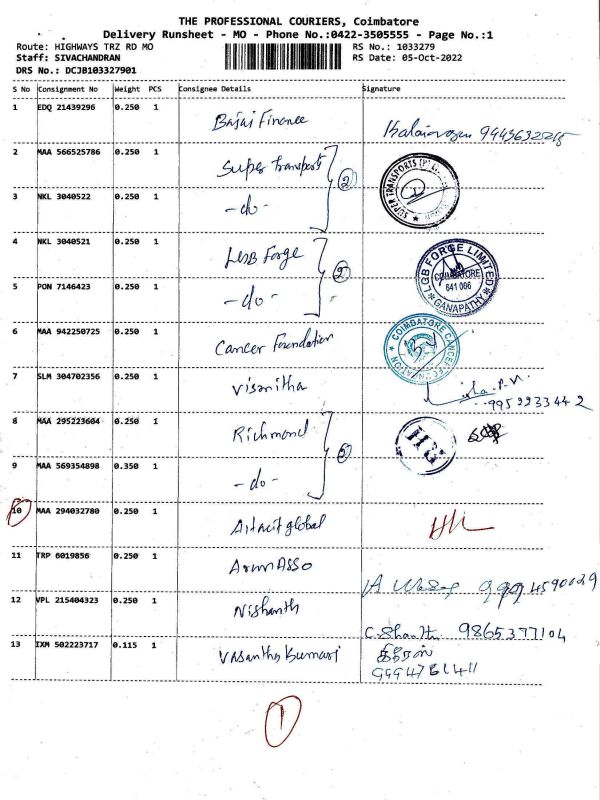 THE PROFESSIONAL COURIERS, Coimbatore
Delivery Runsheet - MO - Phone No.:0422-3505555 - Page No.:1
Route: HIGHWAYS TRZ RD MO RS No.: 1033279
Staff: SIVACHANDRAN RS Date: 05-Oct-2022
DRS No.: DCJB103327901
S No Consignment No Weight PCS Consignee Details Signature
1 EDQ 21439296 0.250 1 Bajaj Finance
2 MAA 566525786 0.250 1 Super Transports
3 NKL 3040522 0.250 1 -do-
2
SUPER TRANSPORTS
4 NKL 3040521 0.250 1 LGB Forge
5 PON 7146423 0.250 1 -do-
2
LGB FORGE LIMITED
COIMBATORE
641 006
GANAPATHY
6 MAA 942250725 0.250 1 Cancer Foundation
COIMBATORE CANCER FOUNDATION
7 SLM 304702356 0.250 1 Visanitha
9952233442
8 MAA 295223604 0.250 1 Richmond
9 MAA 569354898 0.350 1 -do-
10 MAA 294032780 0.250 1 global
11 TRP 6019856 0.250 1 Arun Asso
12 VPL 215404323 0.250 1 Nishanth 9865377104
13 IXM 502223717 0.115 1 Vasantha Kumari
1